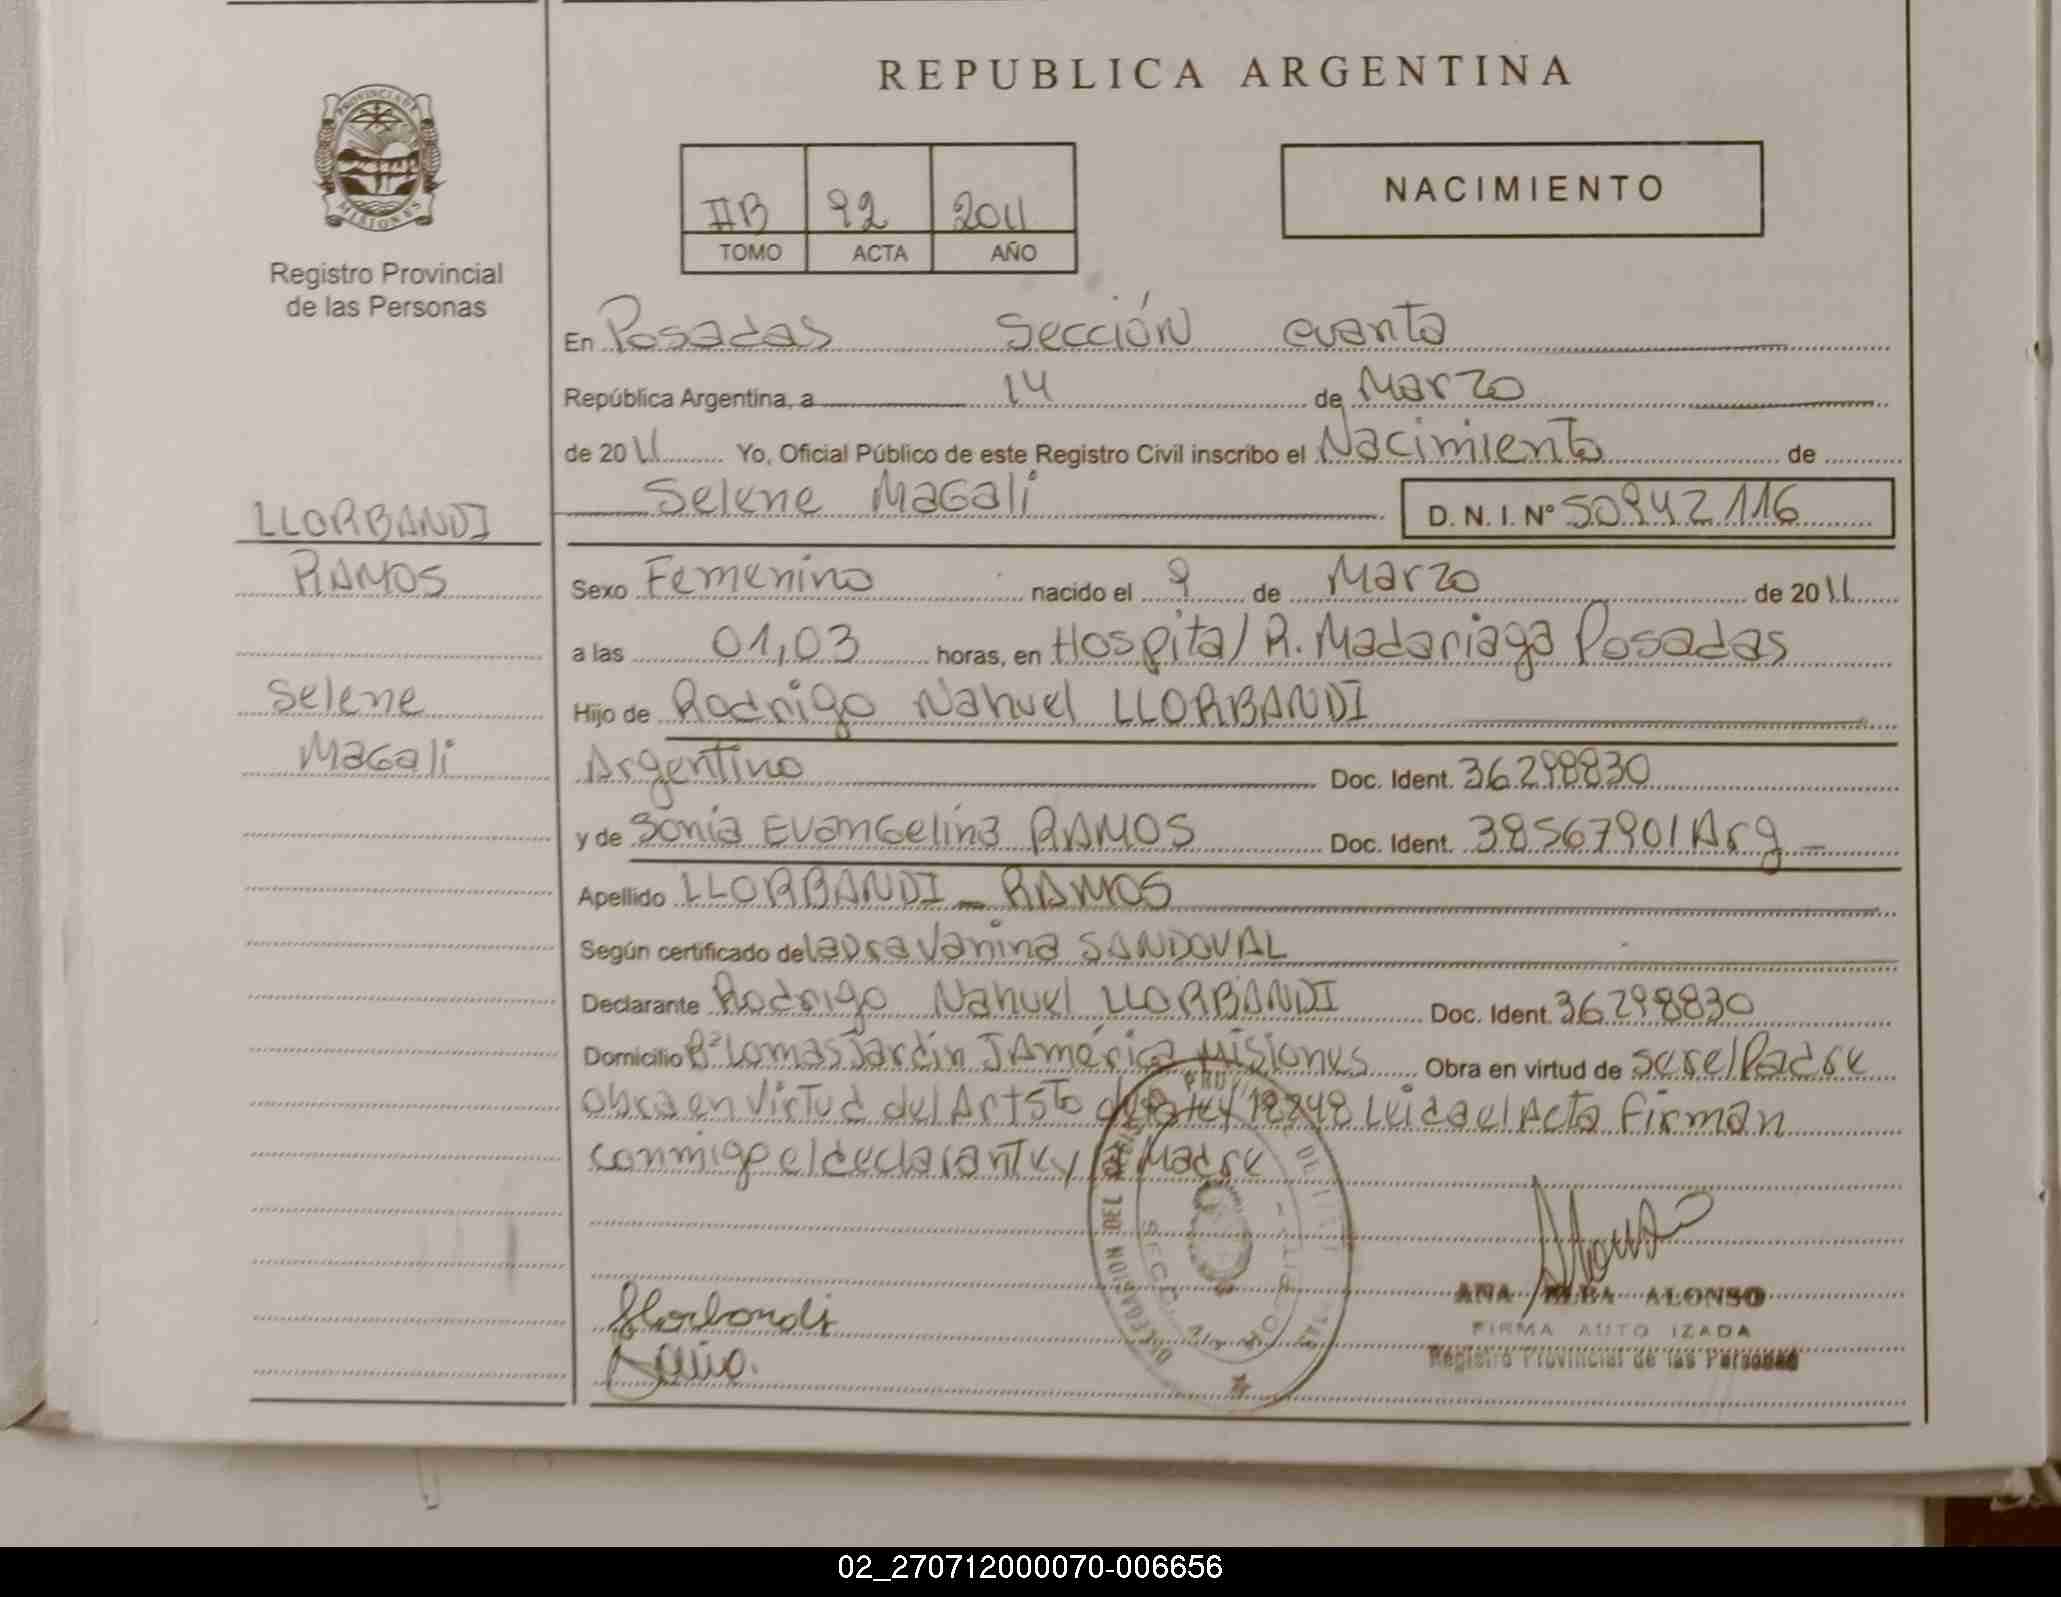 REPUBLICA ARGENTINA
PROVINCIA DE
MISIONES
Registro Provincial
de las Personas
IIB 92 2011
TOMO ACTA AÑO
NACIMIENTO
En Posadas Sección cuarta
República Argentina, a 14 de Marzo
de 2011 Yo, Oficial Público de este Registro Civil inscribo el Nacimiento de
Selene Magali D. N. I. Nº 50942116
LLORBANDI
RAMOS
Selene
Magali
Sexo Femenino nacido el 9 de Marzo de 2011
a las 01,03 horas, en Hospital R. Madariaga Posadas
Hijo de Rodrigo Nahuel LLORBANDI
Argentino Doc. Ident. 36298830
y de Sonia Evangelina RAMOS Doc. Ident. 38567901 Arg
Apellido LLORBANDI _ RAMOS
Según certificado de Laura Vanina SANDOVAL
Declarante Rodrigo Nahuel LLORBANDI Doc. Ident. 36298830
Domicilio Bº Lomas Jardin J América Misiones Obra en virtud de ser el Padre
obra en virtud del Art 5to de la ley 18248 Leida el Acta Firman
conmigo el declarante y la Madre
Llorbandi
ANA ALBA ALONSO
FIRMA AUTO IZADA
Registro Provincial de las Personas
02_270712000070-006656